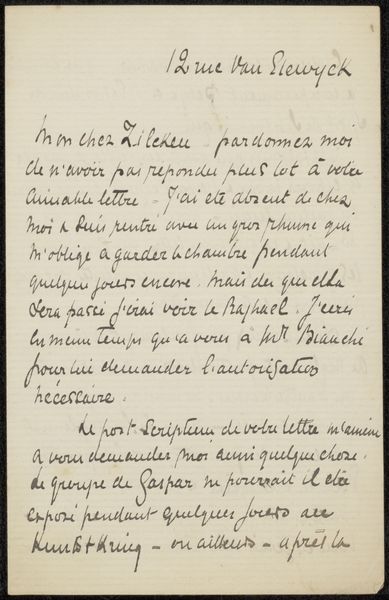 12 rue Van Elewyck
Mon cher Zilcken pardonnez moi
de n'avoir pas repondu plus tot à votre
aimable lettre - J'ai été absent de chez
moi & suis rentre avec un gros rhume qui
m'oblige a garder la chambre pendant
quelques jours encore. Mais des que cela
sera passé j'irai voir le Raphael. J'ecris
en meme temps qu'a vous à Mr Bianchi
pour lui demander l'autorisation
nécessaire.
Le post-scriptum de votre lettre m'amène
a vous demander moi aussi quelque chose.
Le groupe de Gaspar ne pourrait il etre
exposé pendant quelques jours au
Kunst Kring - ou ailleurs - après la